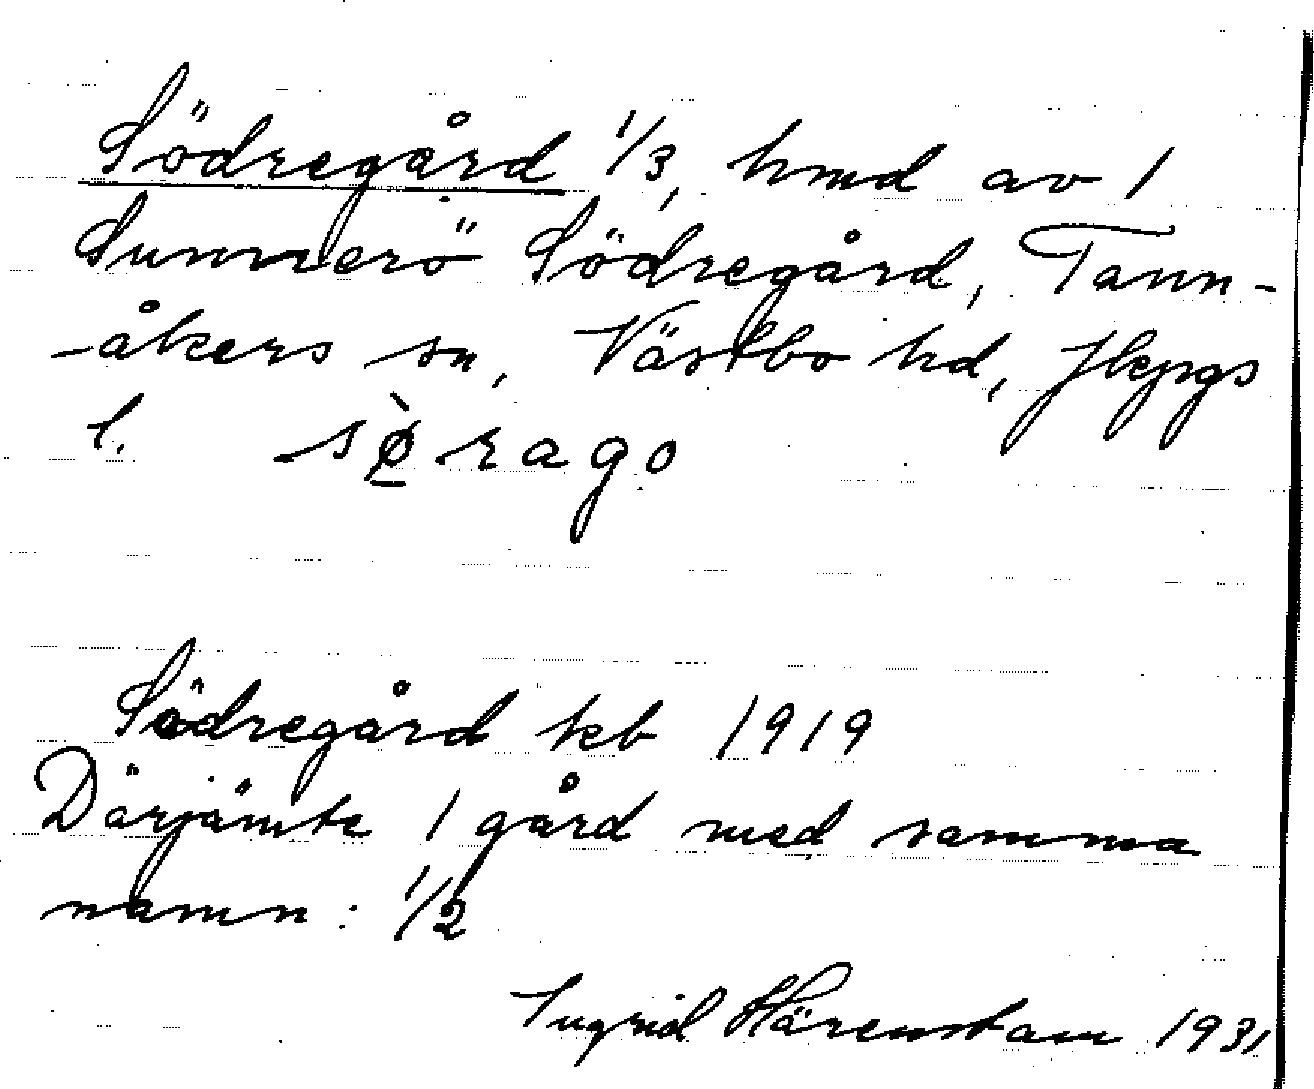 Södregård 1/3, hmd av 1
Sunnerö Södregård, Tann-
-åkers sn, Västbo hd, Jkpgs
l. sø̠̀rago
Södregård keb 1919
Därjämte 1 gård med samma
namn: 1/2
Ingrid Härenstam 1931